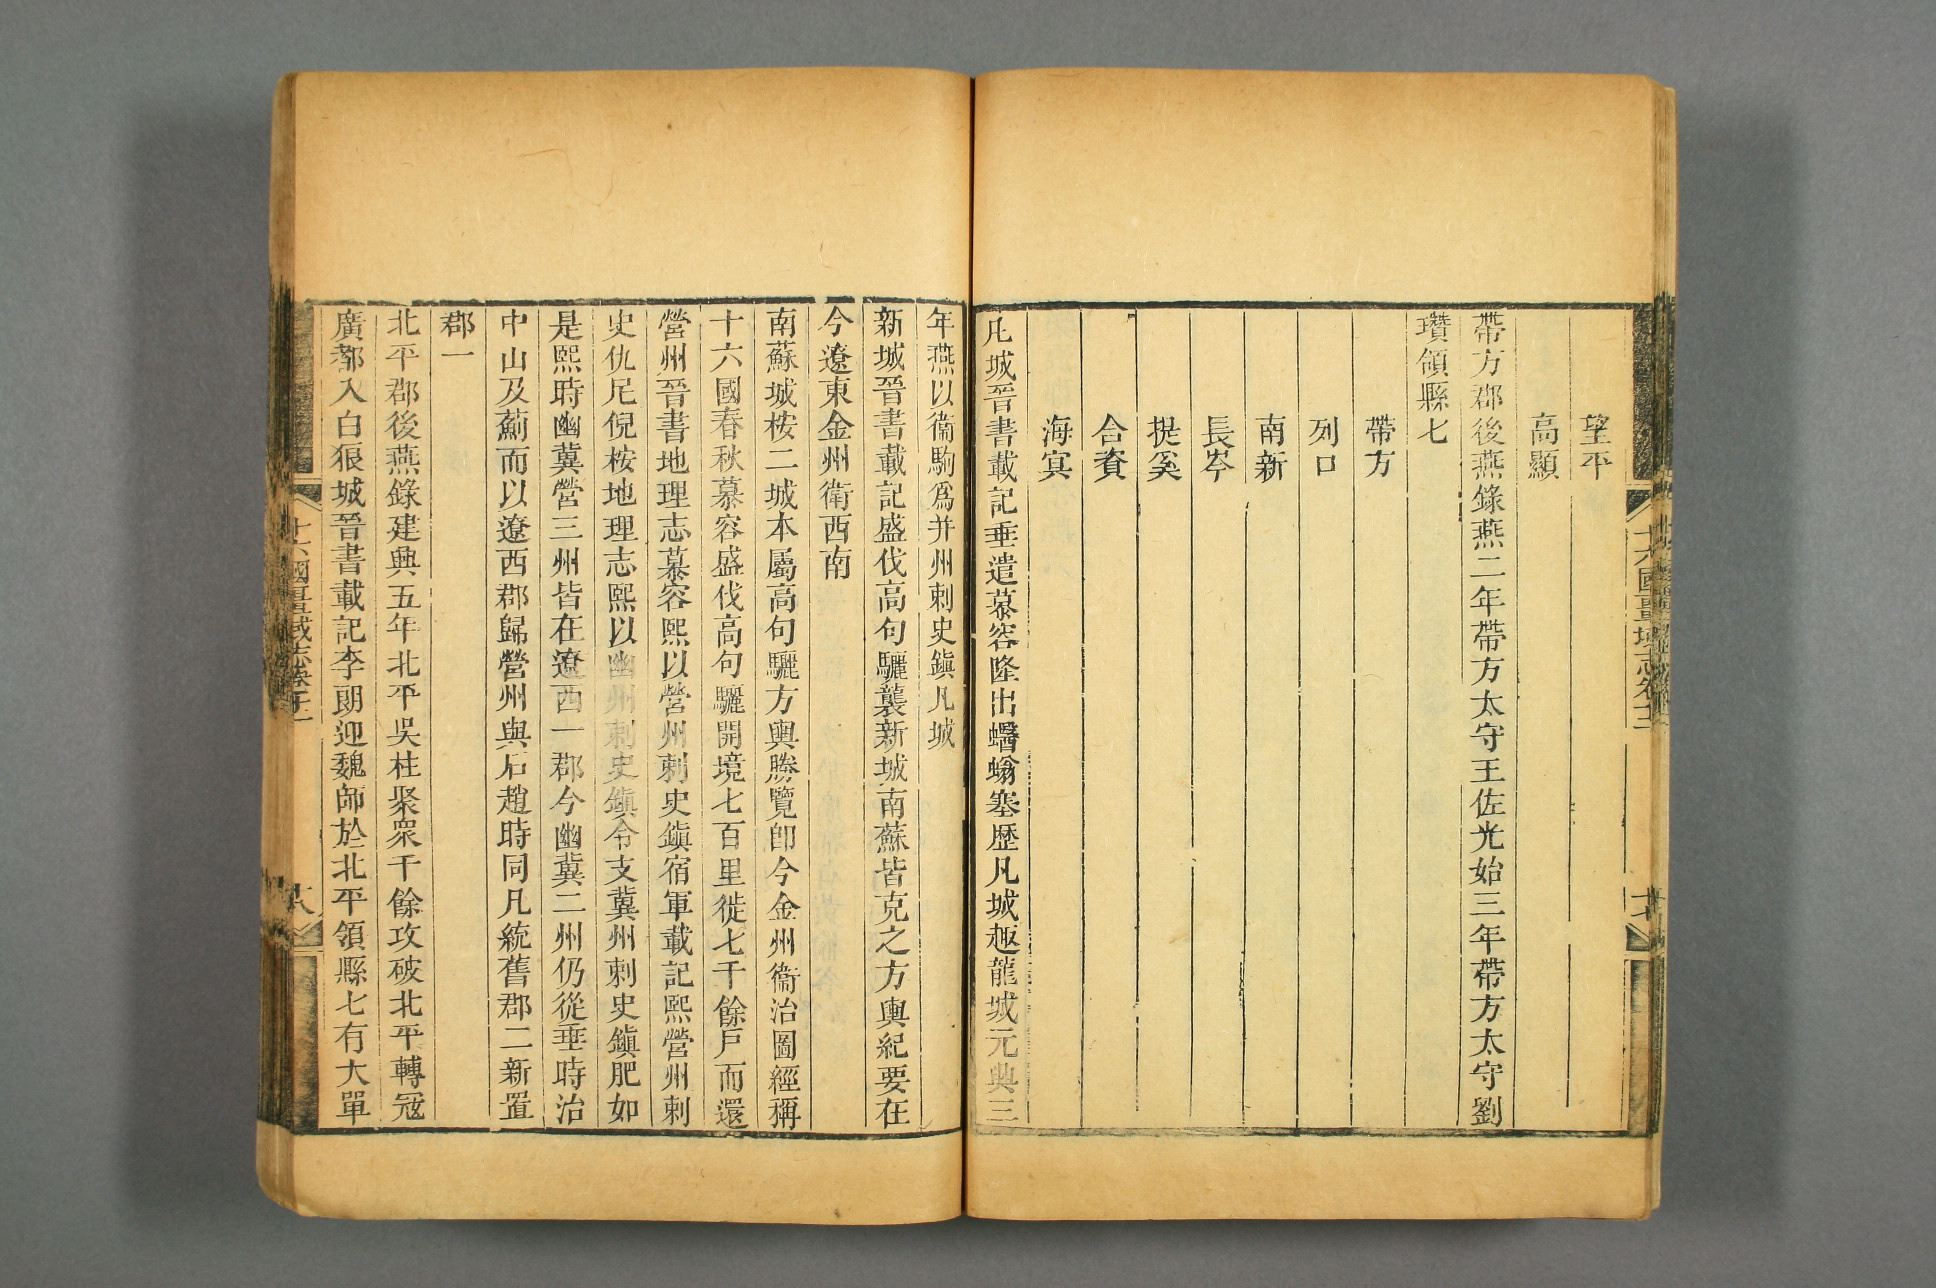 望平
高顯
帶方郡後燕錄燕二年帶方太守王佐光始三年帶方太守劉
瓚領縣七
帶方
列口
南新
長岑
提奚
合資
海冥
凡城晉書載記垂遣慕容隆出蠮螉塞歷凡城趣龍城元典三
年燕以衞駒爲并州刺史鎭凡城
新城晉書載記盛伐高句驪襲新城南蘇皆克之方輿紀要在
今遼東金州衛西南
南蘇城桉二城本屬高句驪方輿勝覽卽今金州衞治圖經稱
十六國春秋慕容盛伐高句驪開境七百里徙七千餘戸而還
營州晉書地理志慕容熙以營州刺史鎭宿軍載記熙營州刺
史仇尼倪桉地理志熙以幽州刺史鎭令支冀州刺史鎭肥如
是熙時幽冀營三州皆在遼西一郡今幽冀二州仍從垂時治
中山及薊而以遼西郡歸營州與石趙時同凡統舊郡二新置
郡一
北平郡後燕錄建興五年北平吳柱聚衆千餘攻破北平轉寇
廣都入白狼城晉書載記李朗迎魏師於北平領縣七有大單
十六國疆域志卷十二
十八